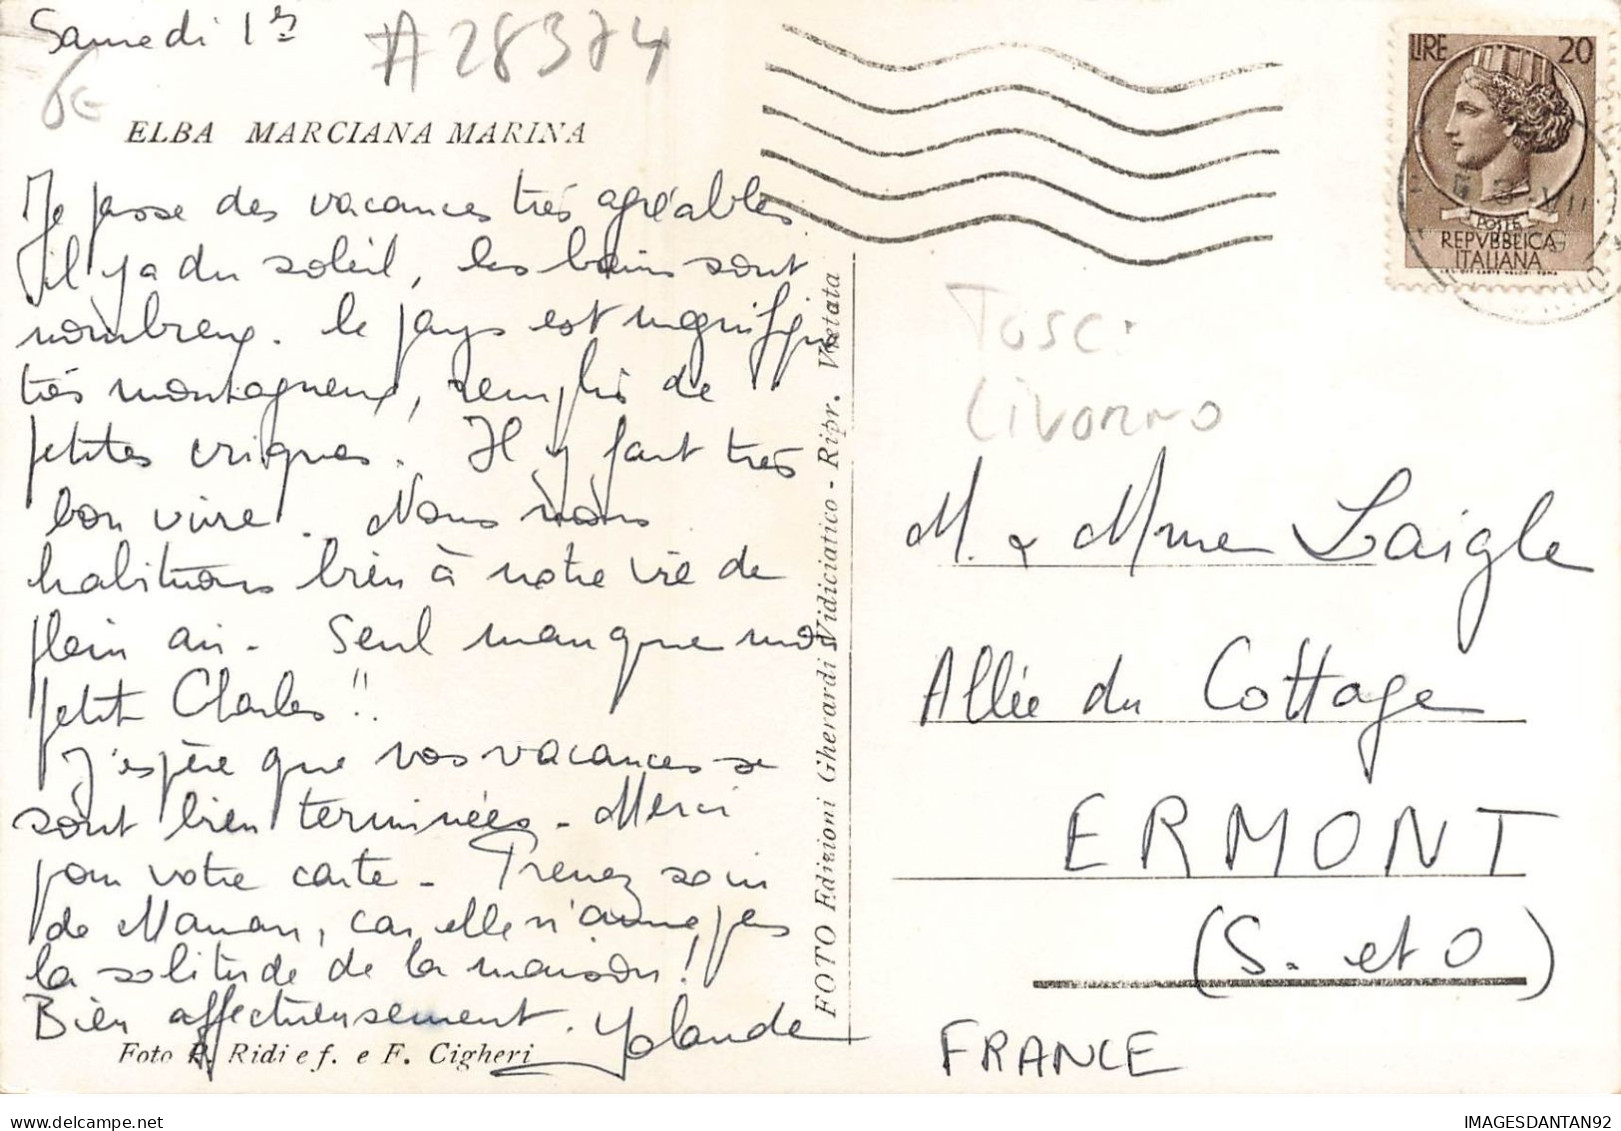 Samedi 1er
#28374
6€
ELBA MARCIANA MARINA
Je passe des vacances très agréables
il y a du soleil, les bains sont
nombreux. le pays est magnifique
très montagneux, remplis de
petites criques. Il y fait très
bon vivre. Nous nous
habituons bien à notre vie de
plein air. Seul manque mon
petit Charles!!
J'espère que vos vacances se
sont bien terminées. Merci
pour votre carte. Prenez soin
de Maman, car elle n'aime pas
la solitude de la maison!
Bien affectueusement. Yolande
Foto R. Ridi e f. e F. Cigheri
FOTO Edizioni Gherardi Vidiciatico - Ripr. Vietata
LIRE 20
POSTE
REPVBBLICA
ITALIANA
Tosc.
Livorno
M. & Mme Laigle
Allée du Cottage
ERMONT
(S. et O)
FRANCE
IMAGESDANTAN92